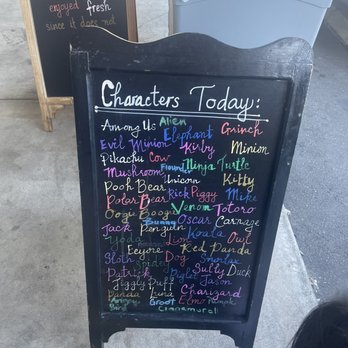 enjoyed fresh
since it does not
Characters Today:
Among Us Alien Elephant Grinch
Evil Minion Kirby Minion
Pikachu Cow Flounder Ninja Turtle
Mushroom Unicorn Kitty
Pooh Bear Rick Piggy Mike
Polar Bear Venom Totoro
Oogi Boogie Bunny Oscar
Jack Penguin Koala Owl
Yoda Red Panda
Eeyore
Sloth Spider Dog
Patrick Sully Duck
Jiggly Puff Jason
Panda Luna Charizard
Angry Bird Groot Elmo
Cinnamoroll